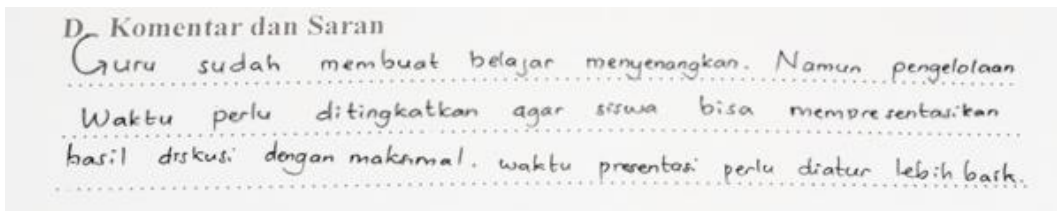 D. Komentar dan Saran
Guru sudah membuat belajar menyenangkan. Namun pengelolaan
Waktu perlu ditingkatkan agar siswa bisa mempresentasikan
hasil diskusi dengan maksimal. waktu presentasi perlu diatur lebih baik.